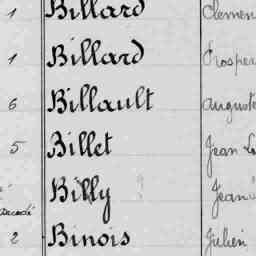 1 Billard Clemen
1 Billard Prosper
6 Billault auguste
5 Billet Jean L
Billy Jean
2 Binois Julien